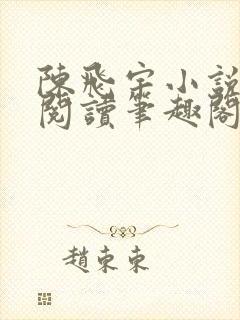 陳飛宇小說
閱讀筆趣閣
趙東東